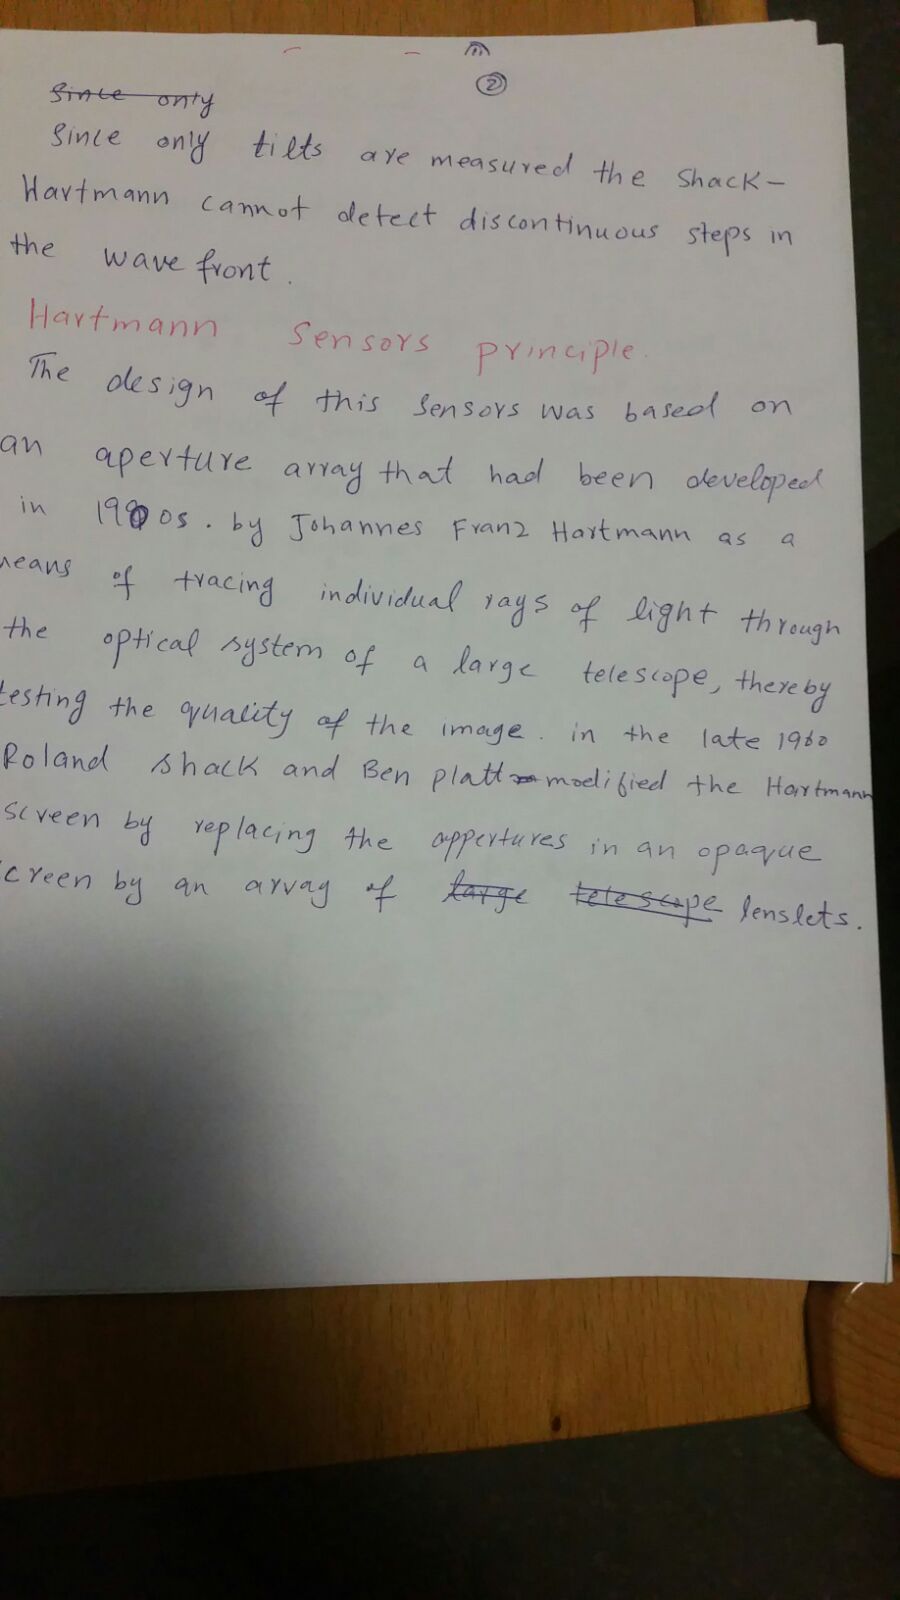 ②
Since only
Since only tilts are measured the Shack-
Hartmann cannot detect discontinuous steps in
the wave front.
Hartmann Sensors principle.
The design of this Sensors was based on
an aperture array that had been developed
in 1900s. by Johannes Franz Hartmann as a
means of tracing individual rays of light through
the optical system of a large telescope, thereby
testing the quality of the image. in the late 1960
Roland shack and Ben platt modified the Hartmann
screen by replacing the appertures in an opaque
screen by an arvag of large telescope lenslets.